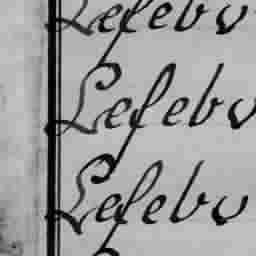 Lefebv
Lefebv
Lefebv